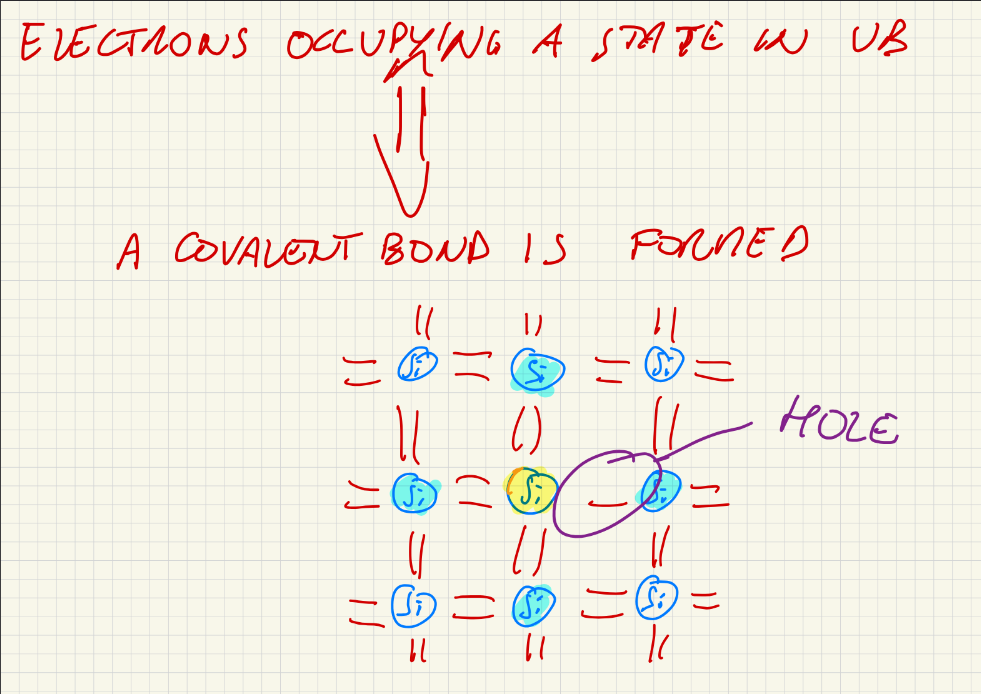 ELECTRONS OCCUPYING A STATE IN VB
A COVALENT BOND IS FORMED
Si Si Si
HOLE
Si Si Si
Si Si Si